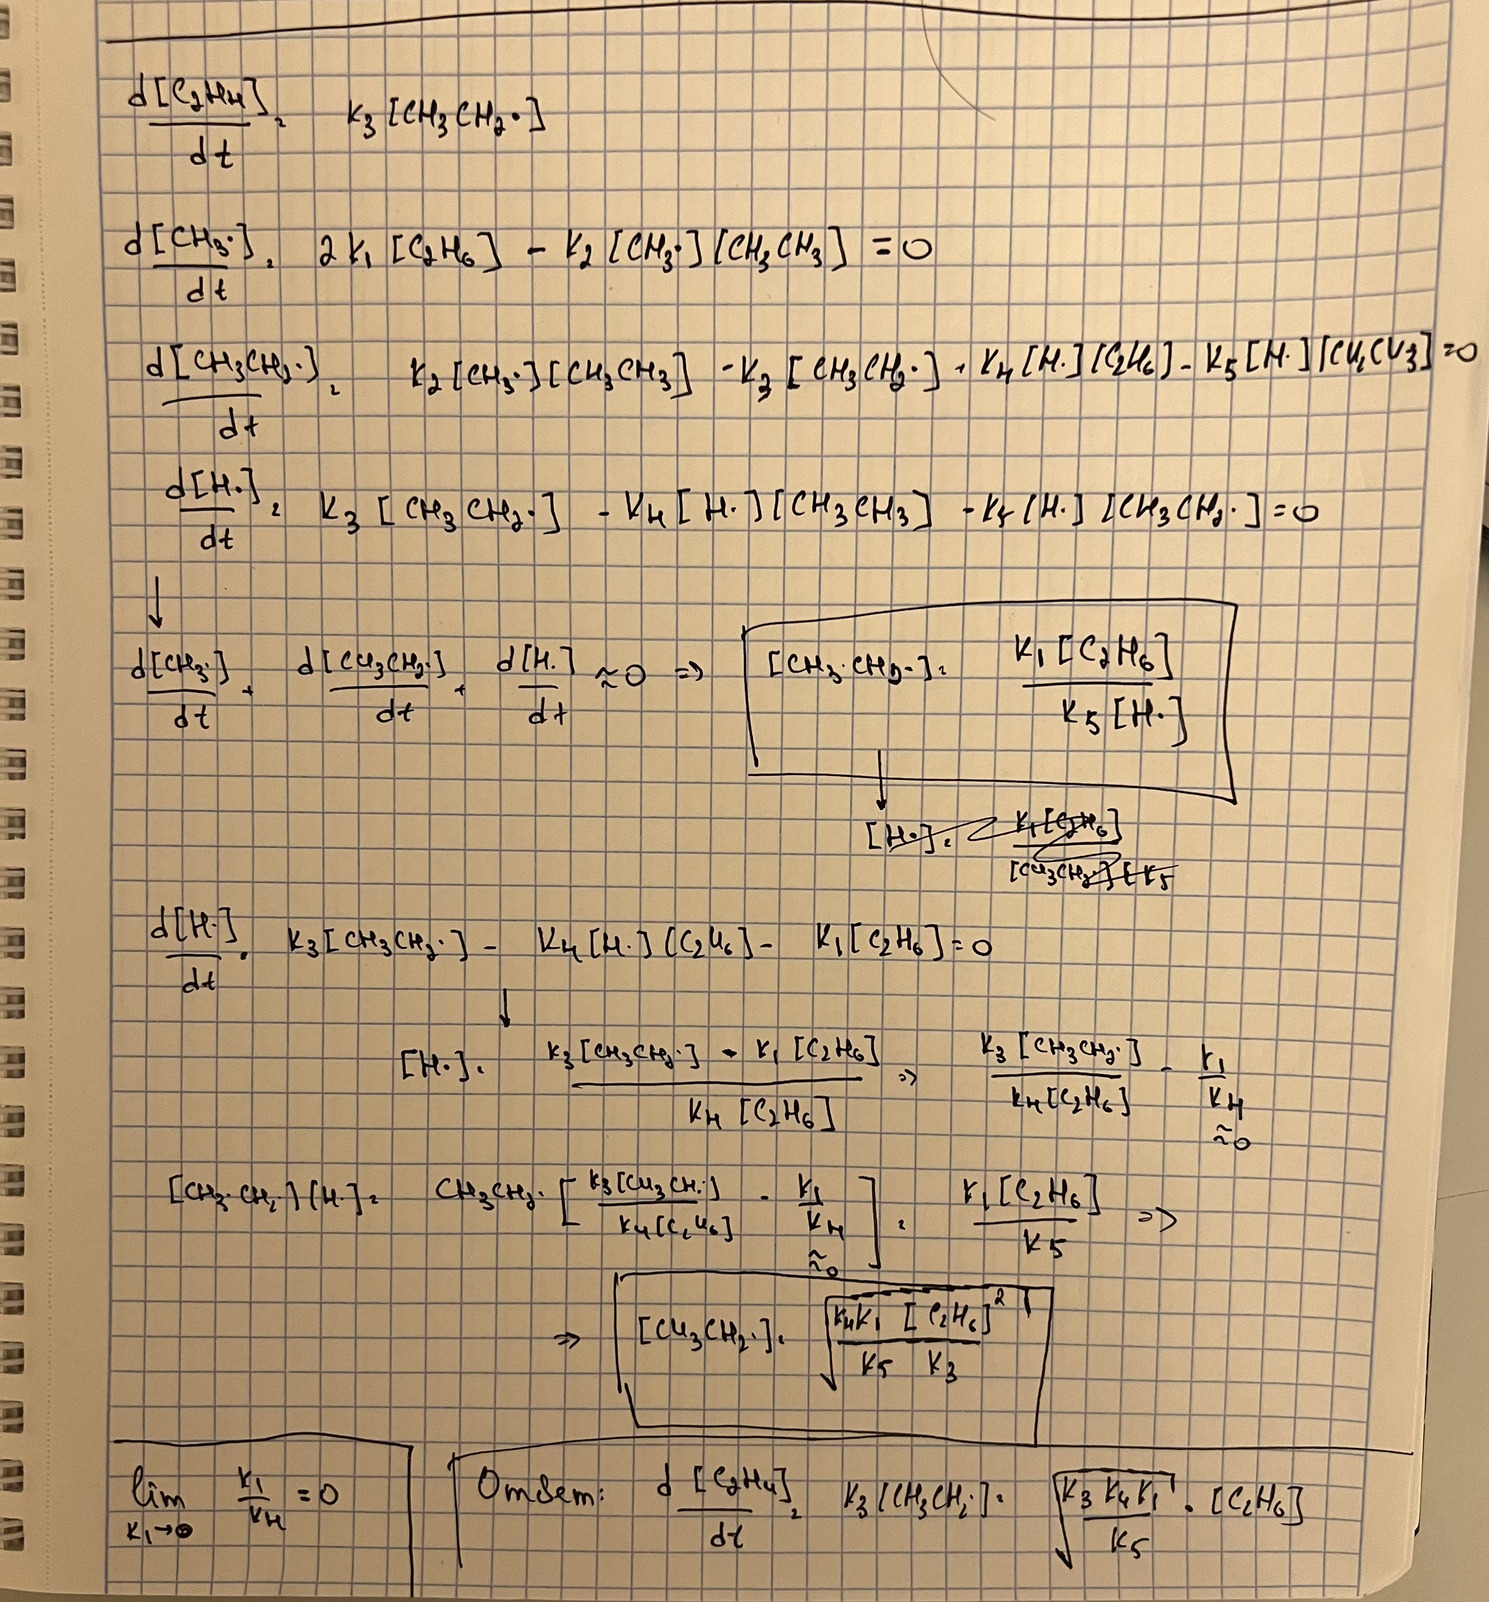 d[C₂H₄]/dt = K₃[CH₃CH₂·]
d[CH₃·]/dt = 2K₁[C₂H₆] - K₂[CH₃·][CH₃CH₃] = 0
d[CH₃CH₂·]/dt = K₂[CH₃·][CH₃CH₃] - K₃[CH₃CH₂·] + K₄[H·][C₂H₆] - K₅[H·][CH₂CH₃] = 0
d[H·]/dt = K₃[CH₃CH₂·] - K₄[H·][CH₃CH₃] - K₅[H·][CH₃CH₂·] = 0
↓
d[CH₃·]/dt + d[CH₃CH₂·]/dt + d[H·]/dt ≈ 0 ⇒ [CH₃·CH₂·] = K₁[C₂H₆]/K₅[H·]
↓
[H·] = K₁[C₂H₆]/[CH₃CH₂·][K₅
d[H·]/dt = K₃[CH₃CH₂·] - K₄[H·][C₂H₆] - K₁[C₂H₆] = 0
↓
[H·] = K₃[CH₃CH₂·] - K₁[C₂H₆]/K₄[C₂H₆] ⇒ K₃[CH₃CH₂·]/K₄[C₂H₆] - K₁/K₄ ≈0
[CH₃·CH₂·][H·] = CH₃CH₂·[K₃[CH₃CH₂·]/K₄[C₂H₆] - K₁/K₄ ≈0] = K₁[C₂H₆]/K₅ ⇒
⇒ [CH₃CH₂·] = √(K₄K₁[C₂H₆]²/K₅K₃)
lim K₁→0 K₁/K₄ = 0
Ответ: d[C₂H₄]/dt = K₃[CH₃CH₂·] = √(K₃K₄K₁/K₅) · [C₂H₆]